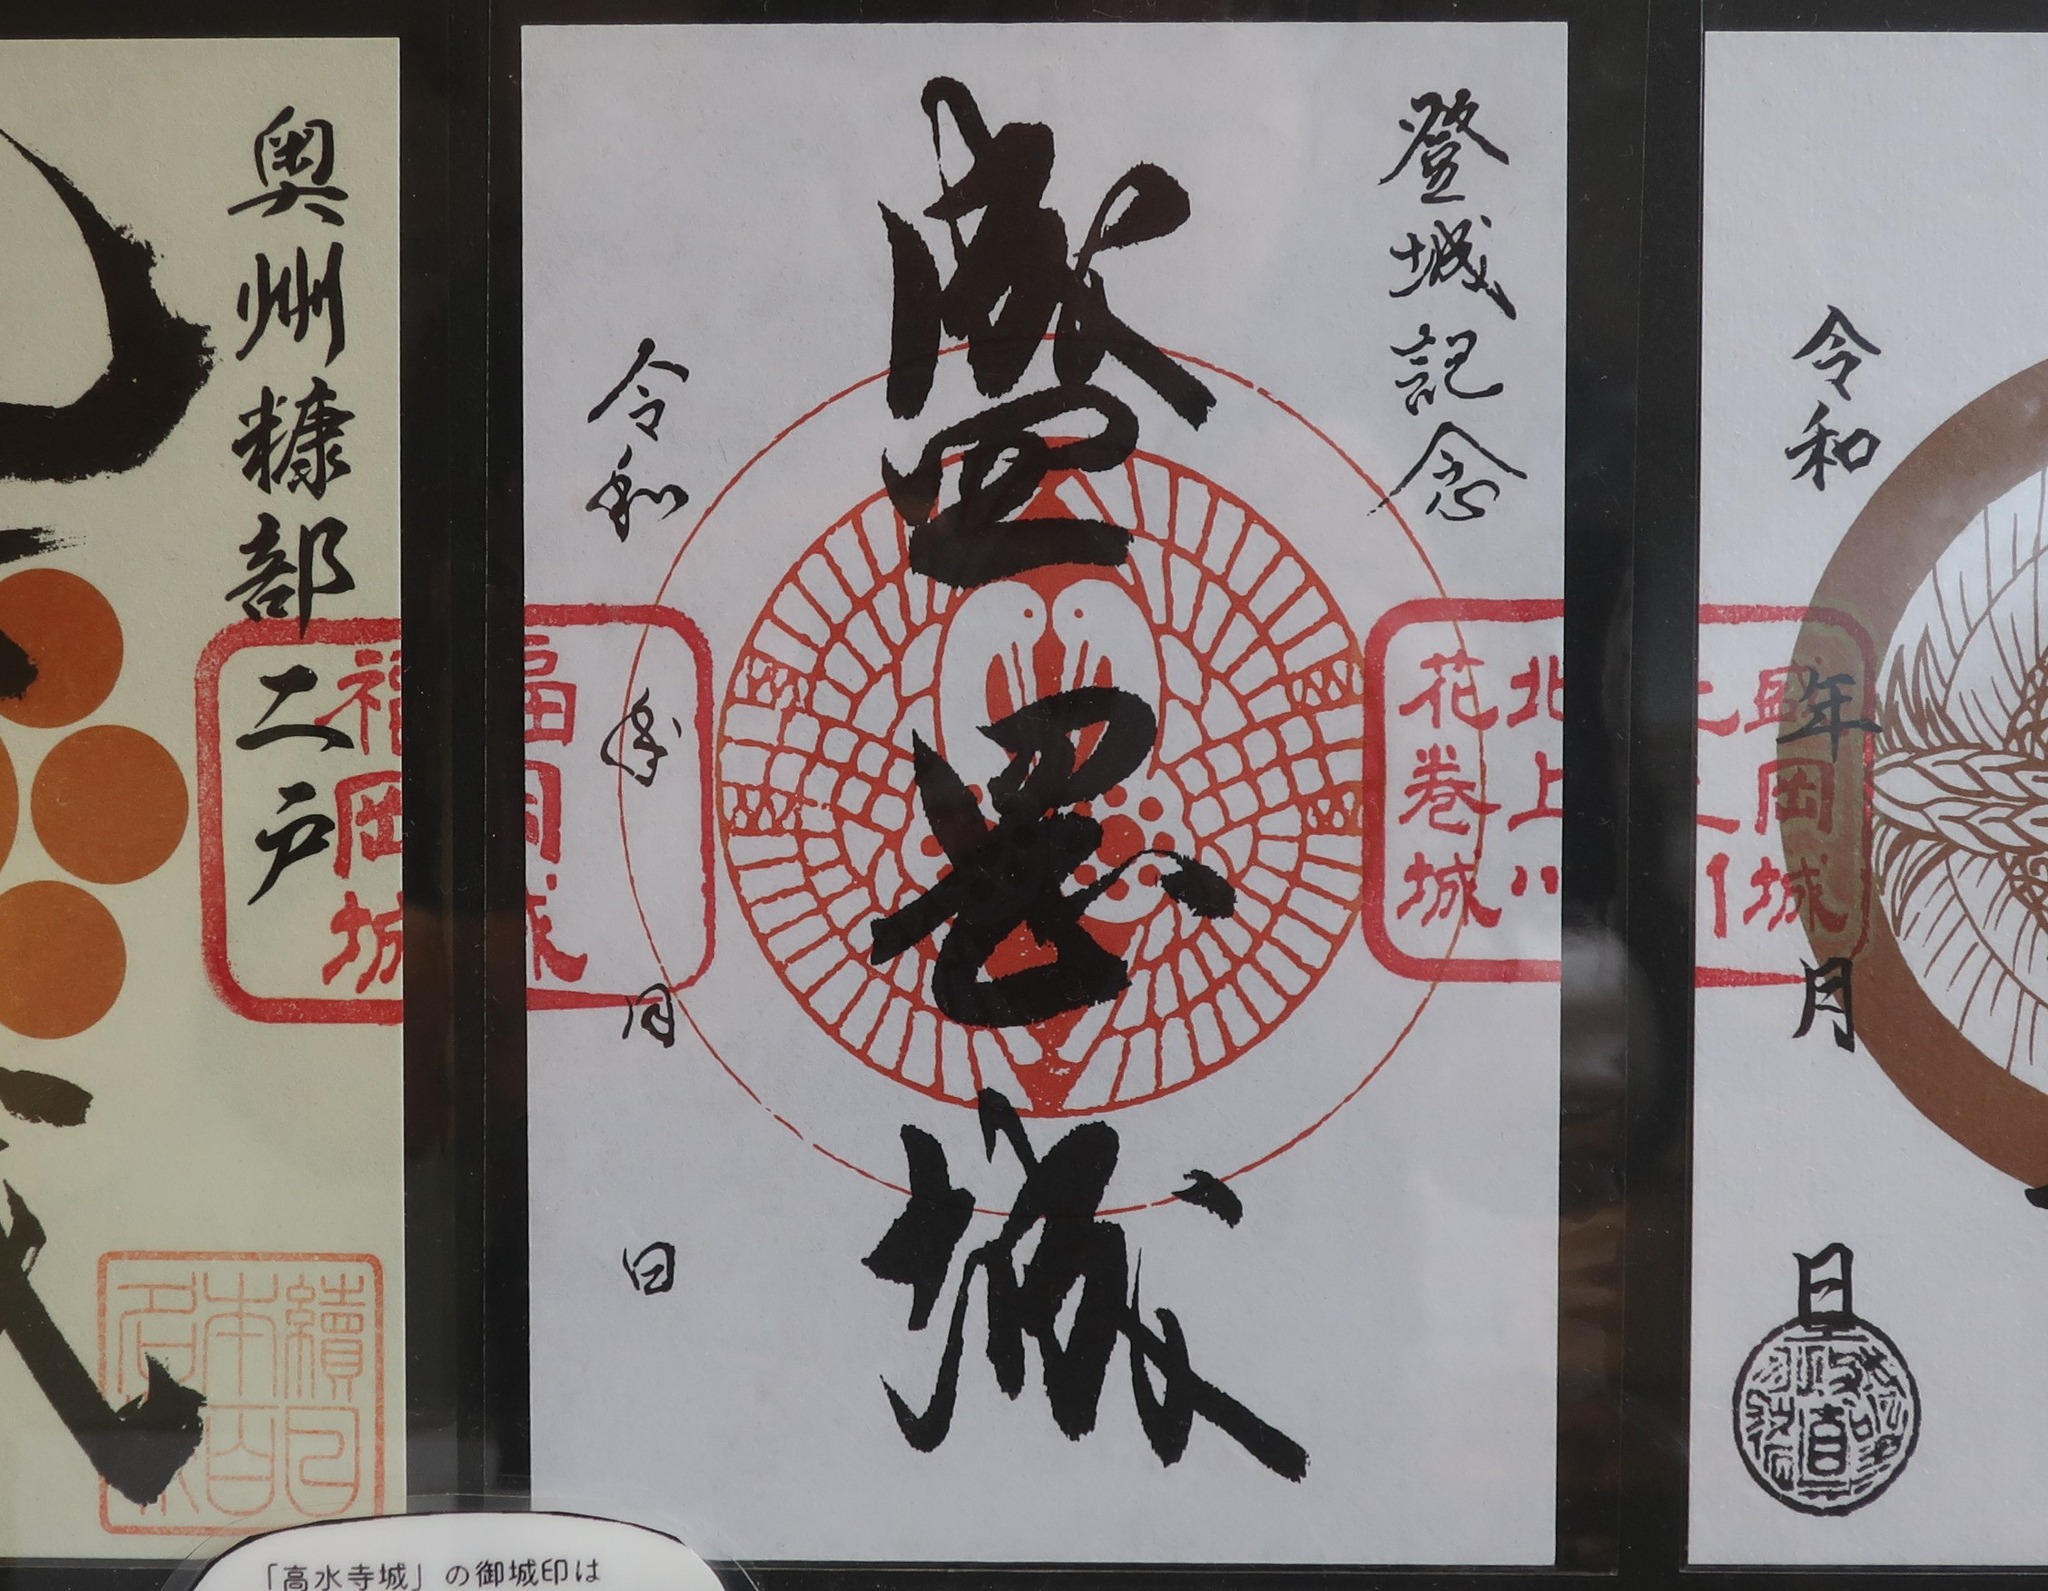 登城記念
盛岡城
令和 年 月 日
奥州糠部二戸
福岡城
續日
本百
名
福岡城
北上
花巻城
盛岡城
令和 年 月 日
「高水寺城」の御城印は